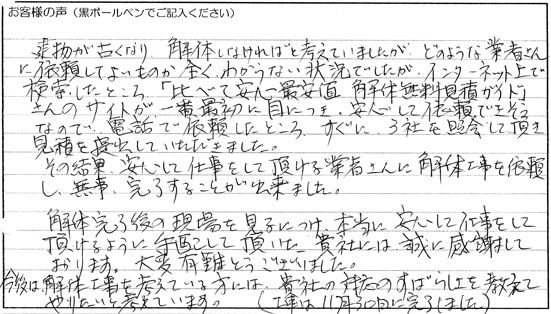 お客様の声（黒ボールペンでご記入ください）
建物が古くなり、解体しなければと考えていましたが、どのような業者さん
に依頼してよいものか全くわからない状況でしたが、インターネット上で
検索したところ、「比べて安心最安値 解体無料見積ガイド」
さんのサイトが、一番最初に目につき、安心して依頼できそう
なので、電話で依頼したところ、すぐに、3社を照会して頂き
見積を提出していただきました。
その結果、安心して仕事をして頂ける業者さんに解体工事を依頼
し、無事、完了することが出来ました。
解体完了後の現場を見るにつけ、本当に安心して仕事をして
頂けるように手配して頂いた、貴社には誠に感謝して
おります。大変有難とうございました。
今後は、解体工事を考えている方には、貴社の対応のすばらしさを教えて
やりたいと考えています。（工事は11月30日に完了しました）